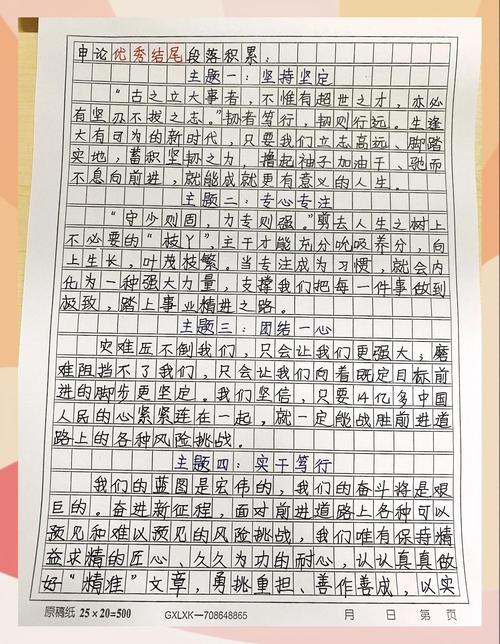 申论优秀结尾段落积累：
主题一：坚持坚定
“古之立大事者，不惟有超世之才，亦必
有坚忍不拔之志。”韧者笃行，韧则行远。生逢
大有可为的新时代，只要我们立志高远、脚踏
实地，蓄积坚韧之力，撸起袖子加油干、驰而
不息向前进，就能成就更有意义的人生。
主题二：专心专注
“守少则固，力专则强。”剪去人生之树上
不必要的“枝丫”，主干才能充分吮吸养分，向
上生长，叶茂枝繁。当专注成为习惯，就会内
化为一种强大力量，支撑我们把每一件事做到
极致，踏上事业精进之路。
主题三：团结一心
灾难压不倒我们，只会让我们更强大；磨
难阻挡不了我们，只会让我们向着既定目标前
进的脚步更坚定。我们坚信，只要14亿多中国
人民的心紧紧连在一起，就一定能战胜前进道
路上的各种风险挑战。
主题四：实干笃行
我们的蓝图是宏伟的，我们的奋斗将是艰
巨的。奋进新征程，面对前进道路上各种可以
预见和难以预见的风险挑战，我们唯有保持精
益求精的匠心、久久为功的耐心，认认真真做
好“精准”文章，勇挑重担、善作善成，以实
原稿纸 25×20=500 GXLXK—708648865 月 日 第 页